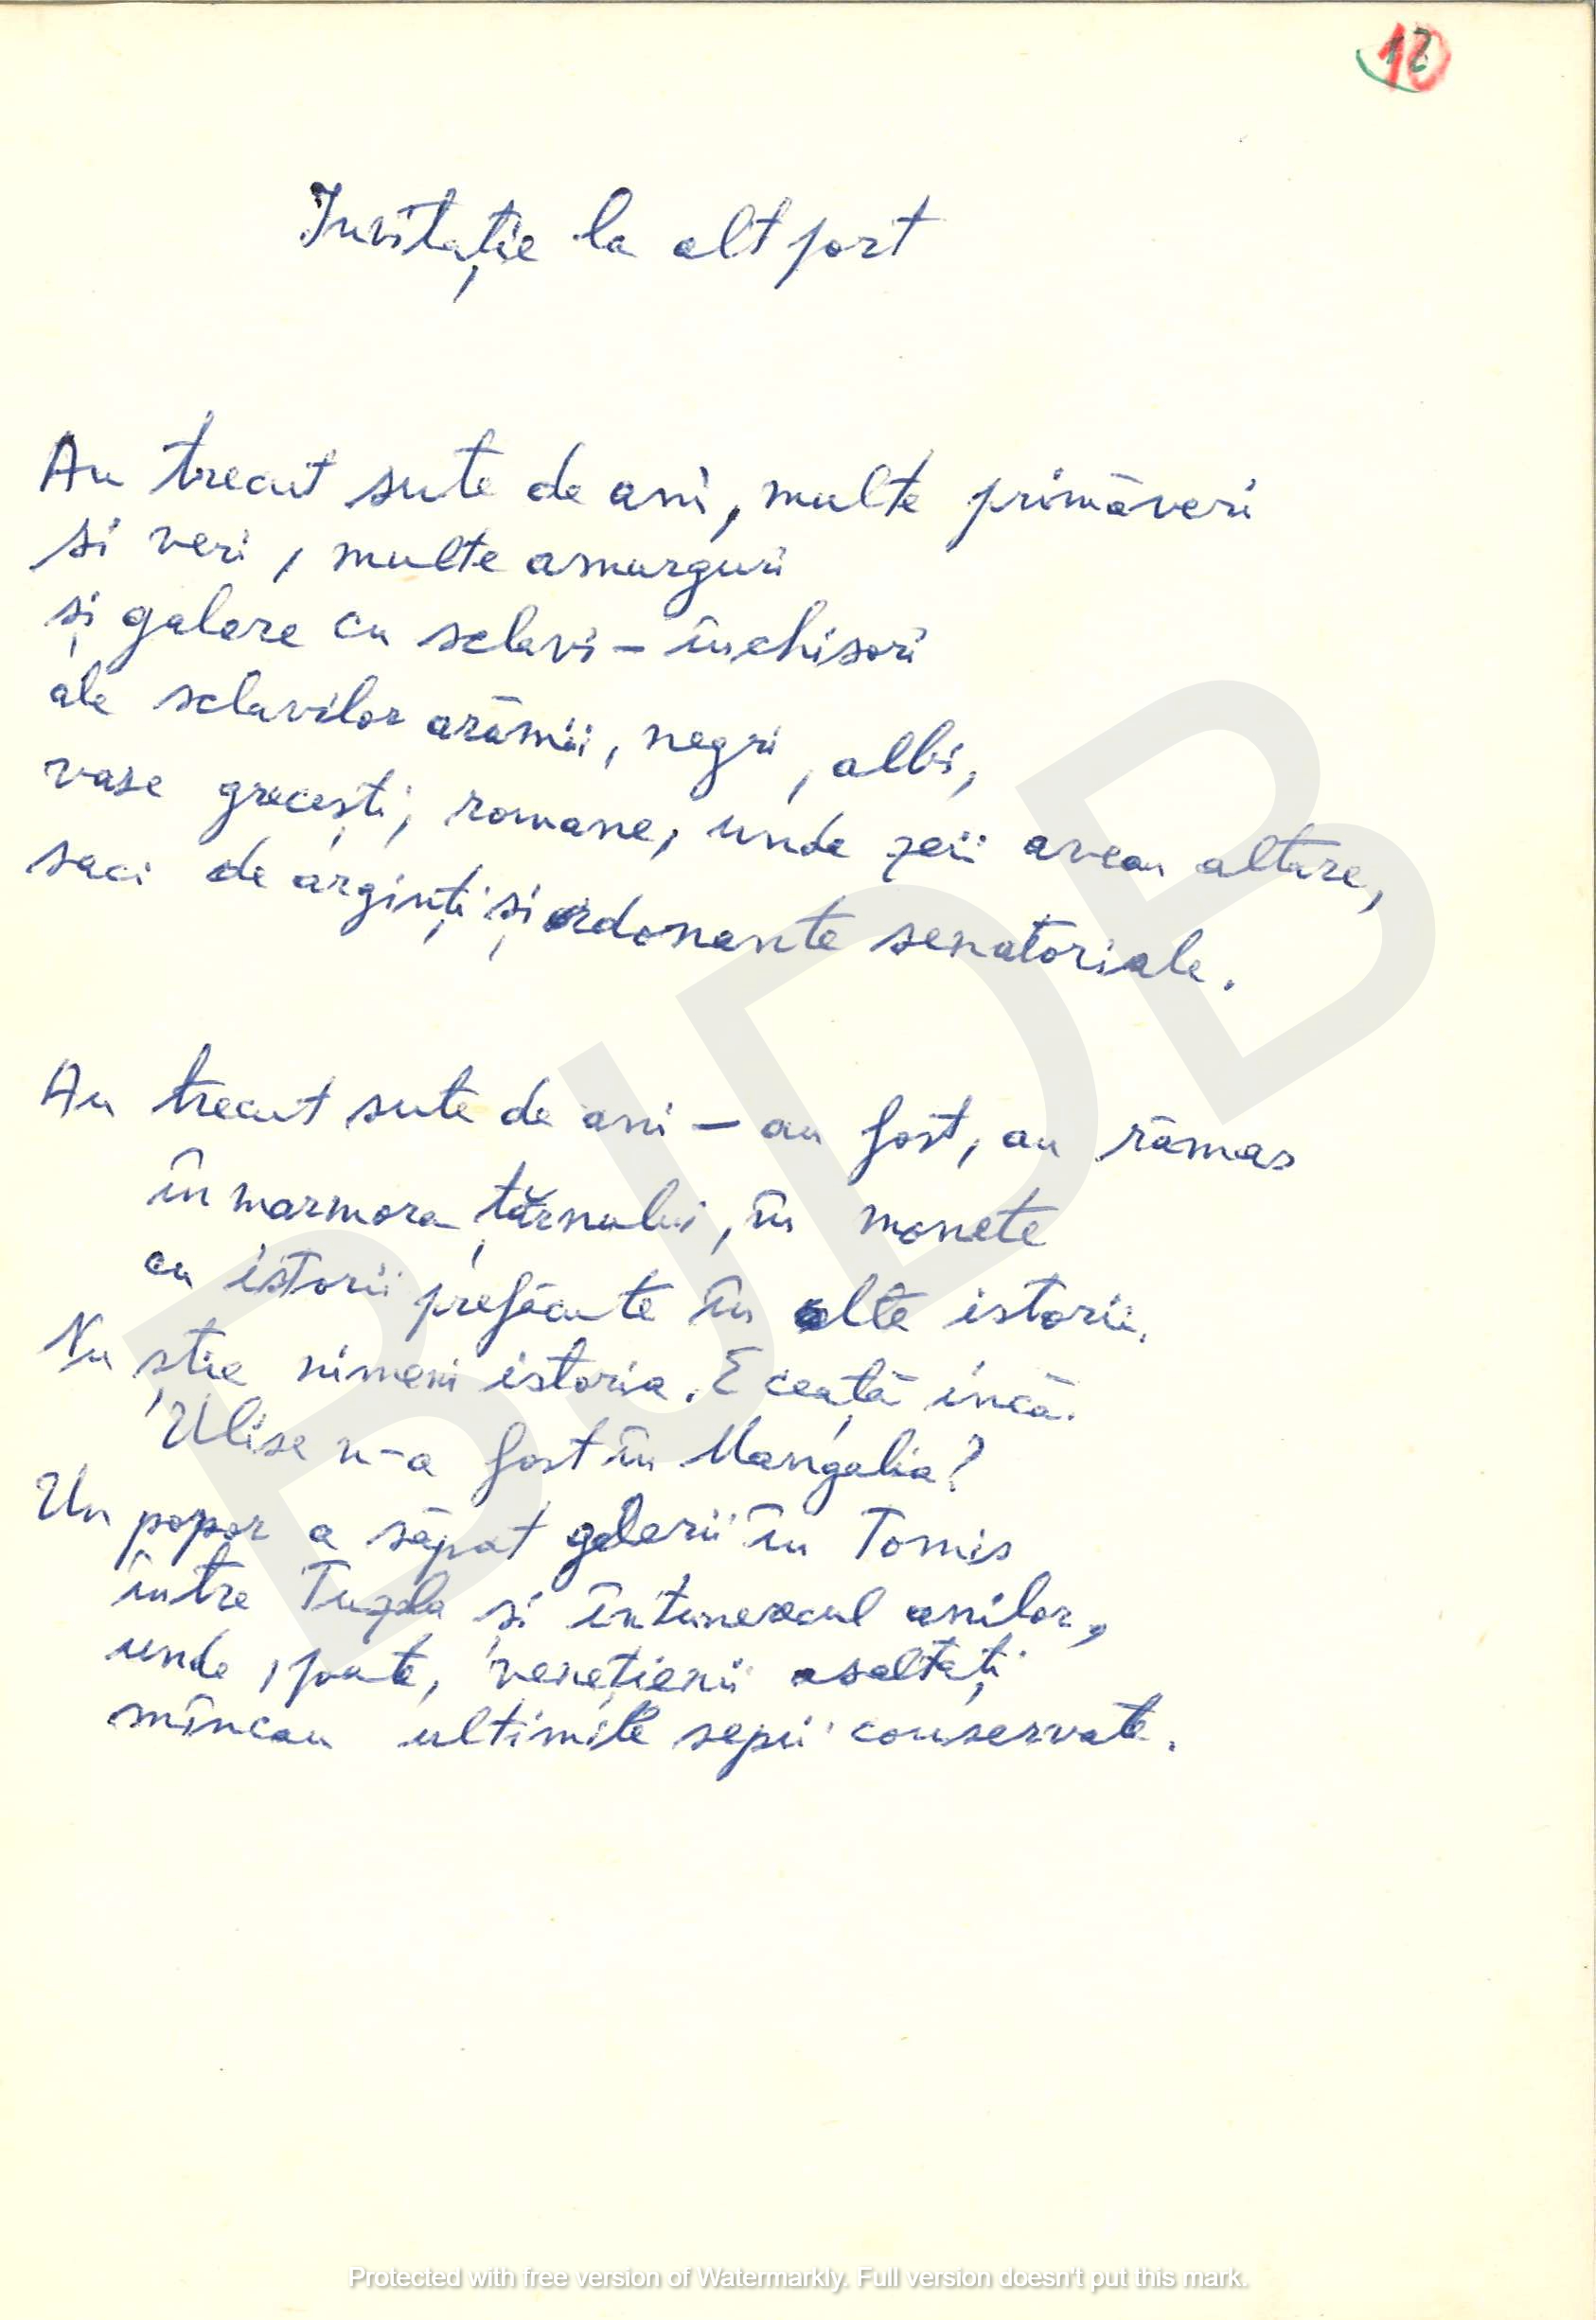 12
Invitație la alt port
Au trecut sute de ani, multe primăveri
si veri, multe amurguri
și galere cu sclavi – închisori
ale sclavilor arămii, negri, albi,
vase grecești, romane, unde zeii aveau altare,
saci de arginți și ordonante senatoriale.
Au trecut sute de ani – au fost, au rămas
în marmora țărmului, în monete
cu istorii prefăcute în alte istorii.
Nu știe nimeni istoria. E ceață încă.
Ulise n-a fost în Mangalia?
Un popor a săpat galerii în Tomis
între Tuzla și întunerecul anilor,
unde, poate, venețienii asaltați
mîncau ultimile sepii conservate.
BJDB
Protected with free version of Watermarkly. Full version doesn't put this mark.